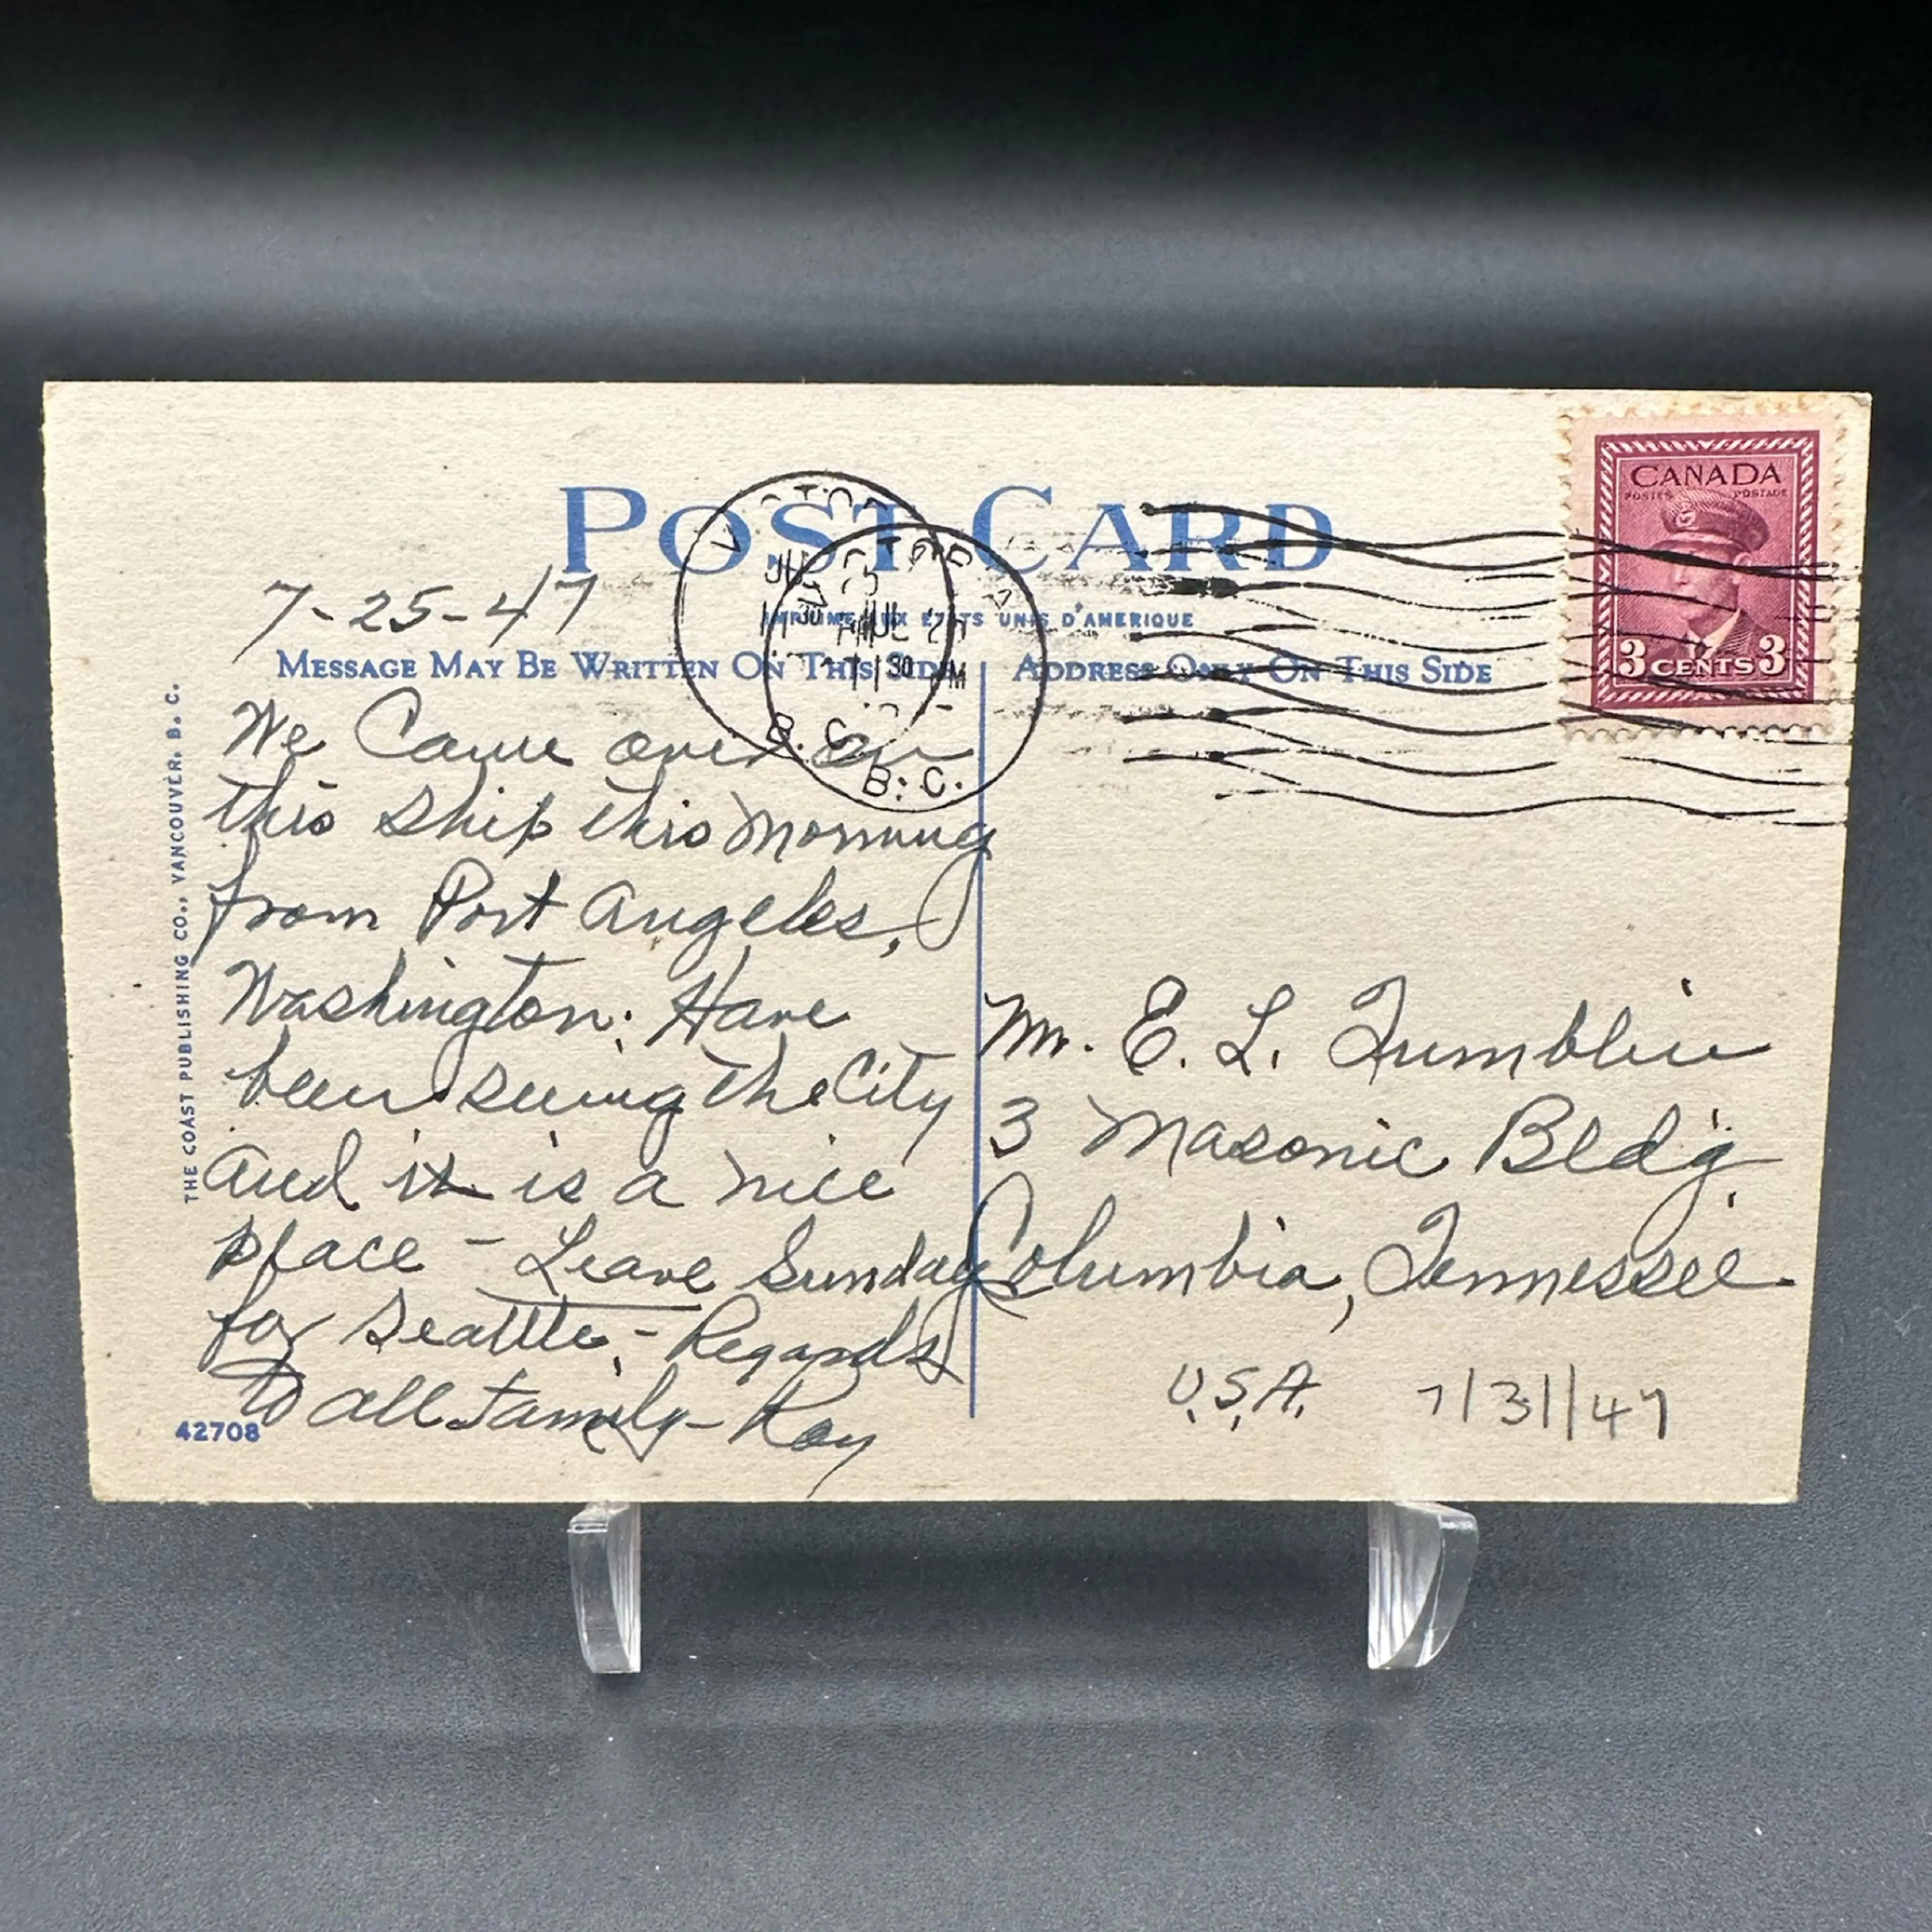 POST CARD
IMPRIME AUX ETATS UNIS D'AMERIQUE
7-25-47
MESSAGE MAY BE WRITTEN ON THIS SIDE
We Came over on
this ship this morning
from Port Angeles,
Washington. Have
been seeing the City
and it is a nice
place - Leave Sunday
for Seattle, - Regards
to all family - Ray
42708
THE COAST PUBLISHING CO., VANCOUVER, B. C.
ADDRESS ONLY ON THIS SIDE
CANADA
POSTES POSTAGE
3 CENTS 3
VICTORIA
JUL
11 30
B. C.
VICTORIA
JUL
11 30 PM
B. C.
Mr. E. L. Tumblin
3 Masonic Bldg.
Columbia, Tennessee
U.S.A. 7/31/47